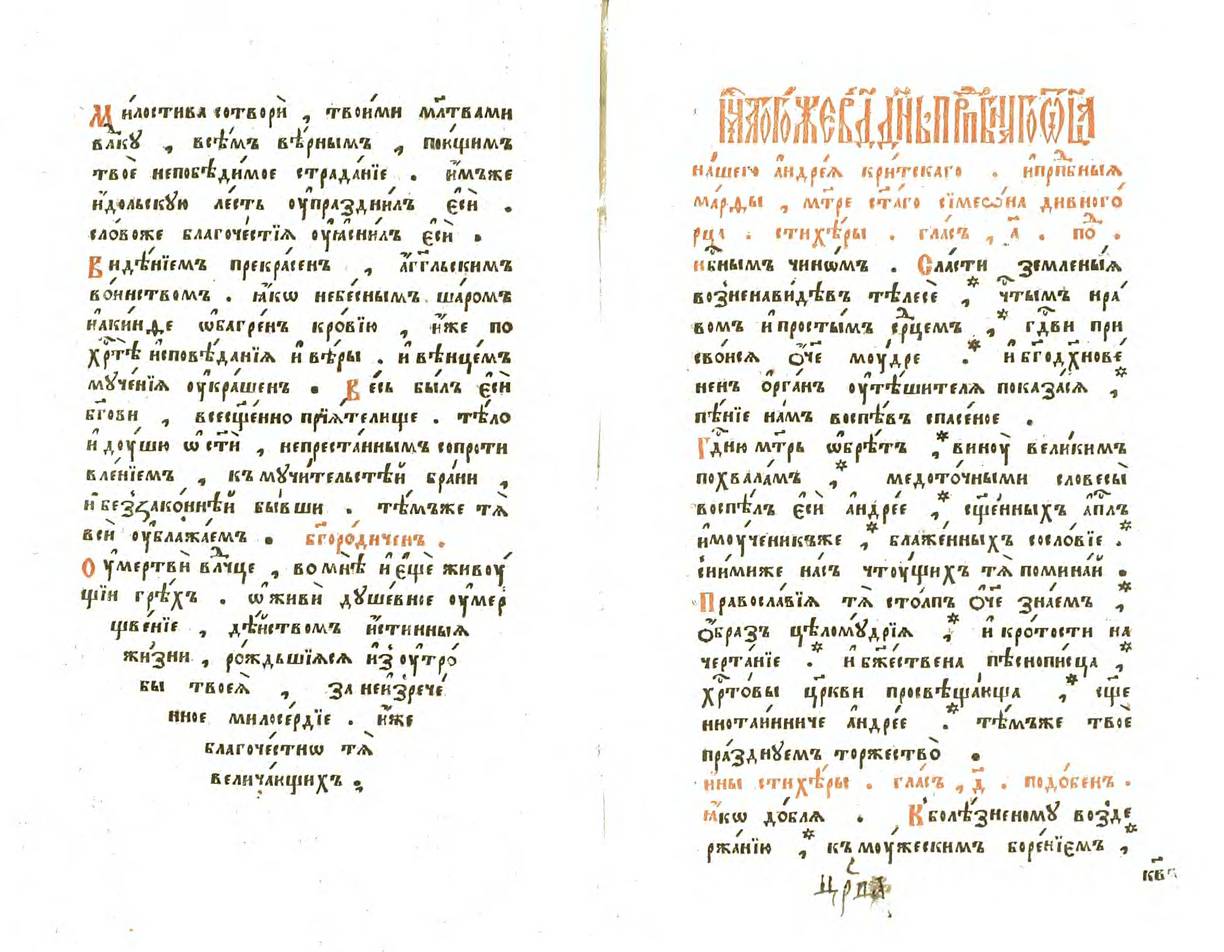 Ми́лостива сотворѝ , твои́ми мл҃твами
влⷣку , всѣ́мъ вѣ́рнымъ , пою́щимъ
твоѐ непобѣди́мое страда́нїе . и҆́мъже
и҆́дольскую ле́сть оу҆праздни́лъ є҆сѝ .
сло́воже благоче́стїѧ оу҆ѧсни́лъ є҆сѝ .
Видѣ́нїемъ прекра́сенъ , а҆́гг҃льскимъ
во́инствомъ . ꙗ҆́кѡ небе́снымъ ша́ромъ
и҆аки́нѳе ѡ҆багре́нъ кро́вїю , и҆́же по
хрⷭ҇тѣ̀ и҆сповѣ́данїѧ и҆ вѣ́ры . и҆ вѣнце́мъ
муче́нїѧ оу҆кра́шенъ . Ве́сь бы́лъ є҆сѝ
бг҃ови , всесщ҃е́нно прїѧ́телище . тѣ́ло
и҆ доу́шю ѡ҆ст҃ѝ , непреста́ннымъ сопроти
вле́нїемъ , къ мучи́тельстѣй бра́ни ,
и҆ беззако́ннѣй бы́вши . тѣ́мъже тѧ̀
всѝ оу҆блажа́емъ . бг҃оро́диченъ .
Оу҆мертвѝ влⷣчце , во мнѣ̀ и҆ є҆щѐ живоу́
щїи грѣ́хъ . ѡ҆живѝ дꙋше́вное оу҆мер
щве́нїе , дѣ́йствомъ и҆́стинныѧ
жи́зни , ро́ждьшїѧсѧ и҆з оу҆тро́
бы твоеѧ̀ , за неизрече́
нное милосе́рдїе . и҆́же
благоче́стнѡ тѧ̀
велича́ющихъ .
МЦ҃А ТОГО́ЖЕ ВЪ Д҃ Д҃НЬ ПРПⷣБНАГО ѾЦ҃А
на́шего а҆ндре́ѧ кри́тскаго . и҆ прпⷣбныѧ
ма́рѳы , мт҃ре ст҃а́го сїмеѡ́на ди́вного
рца . стихѣ́ры . гла́съ , а҃ . поⷣ .
нбⷭ҇нымъ чино́мъ . Сла́сти земле́ныѧ
возненави́дѣвъ тѣлесѐ ,* чⷭ҇тымъ нра́
вомъ и҆ просты́мъ срⷣцемъ ,* гдⷭ҇ви при
сво́исѧ ѻ҆́ч҃е моу́дре .* и҆ бг҃одхнове́
ненъ ѻ҆рга́нъ оу҆тѣ́шителѧ показа́сѧ ,*
пѣ́нїе на́мъ воспѣ́въ спасе́ное .
Гдⷭ҇ню мт҃рь ѡ҆брѣ́тъ ,* виноу̀ вели́кимъ
похвала́мъ ,* медото́чными словесы̀
воспѣ́лъ є҆сѝ а҆ндре́е ,* сщ҃е́нныхъ а҆пⷭ҇лъ
и҆ моу́ченикъже ,* блаже́нныхъ сосло́вїе .*
сни́миже на́съ чтоу́щихъ тѧ̀ помина́й .
Правосла́вїѧ тѧ̀ сто́лпъ ѻ҆́ч҃е зна́емъ ,*
ѻ҆́бразъ цѣлому́дрїѧ ,* и҆ кро́тости на
черта́нїе .* и҆ бж҃е́ствена пѣснопи́сца ,*
хрⷭ҇то́вы цр҃кви просвѣща́юща ,* сщ҃е
ннота́инниче а҆ндре́е .* тѣ́мъже твоѐ
пра́зднуемъ торжество̀ .
и҆́ны стихѣ́ры . гла́съ , д҃ . подо́бенъ .
ꙗ҆́кѡ до́блѧ . К болѣ́зненому возде
ржа́нїю ,* къ моу́жескимъ боре́нїемъ ,*